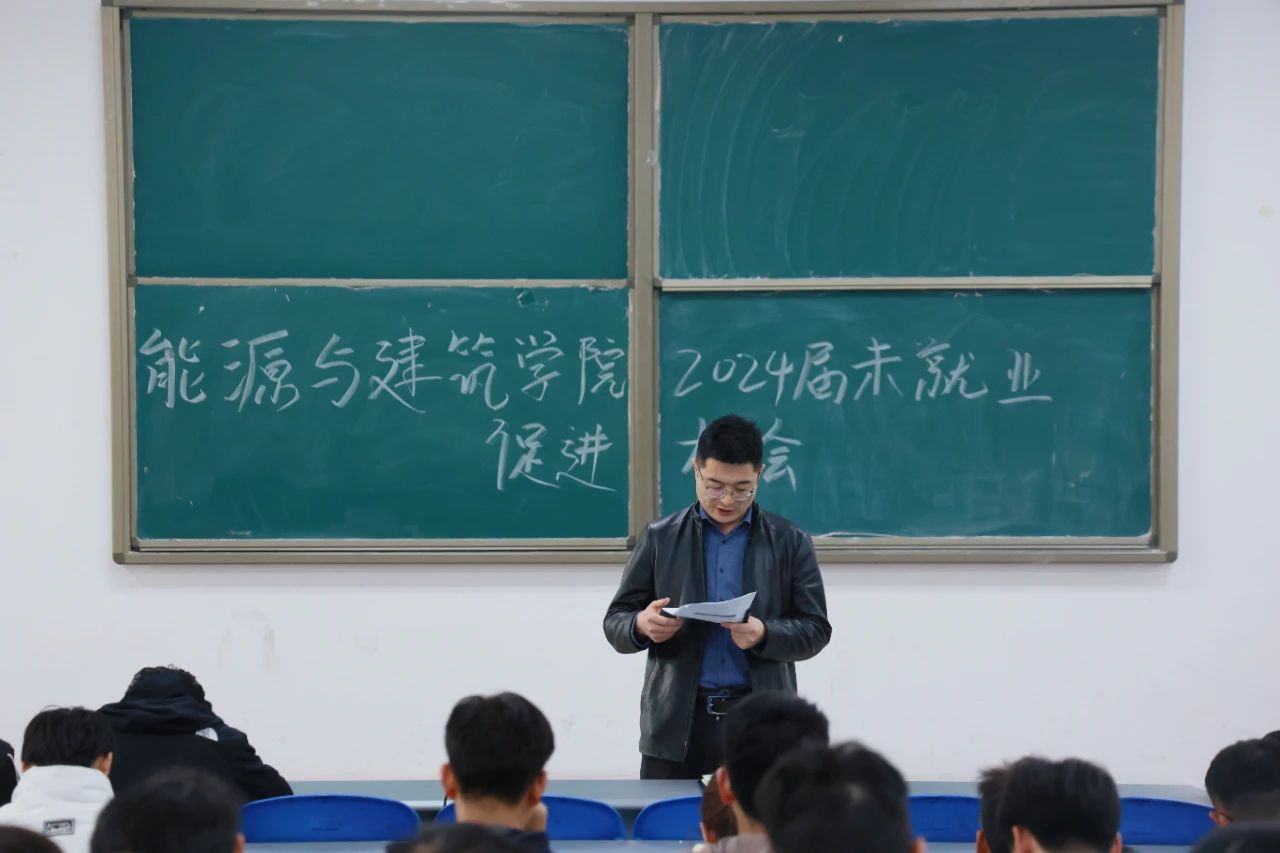 能源与建筑学院 2024届未就业
促进 会